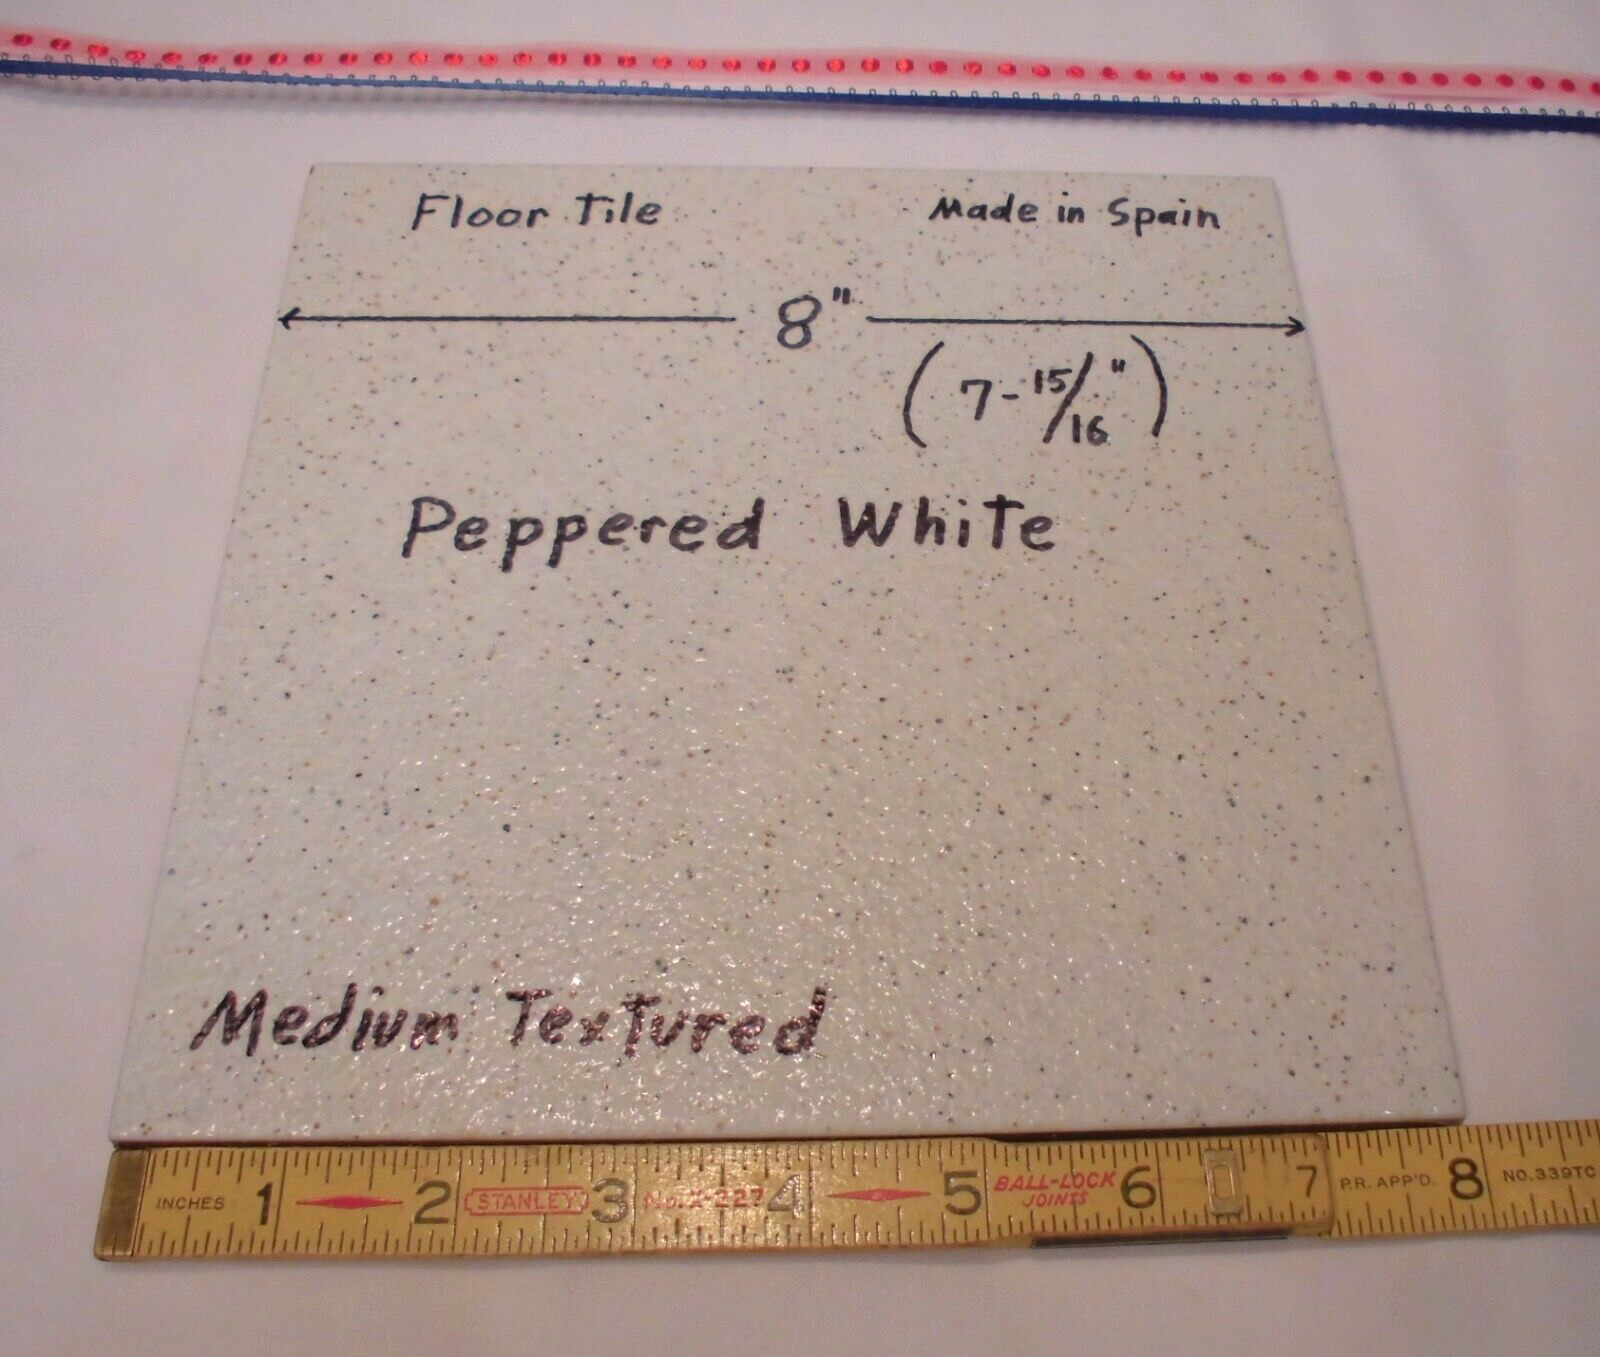 Floor Tile Made in Spain
8"
(7-15/16")
Peppered White
Medium Textured
INCHES 1 2 STANLEY 3 No. X-227 4 5 BALL-LOCK JOINTS 6 7 P.R. APP'D. 8 NO. 339TC